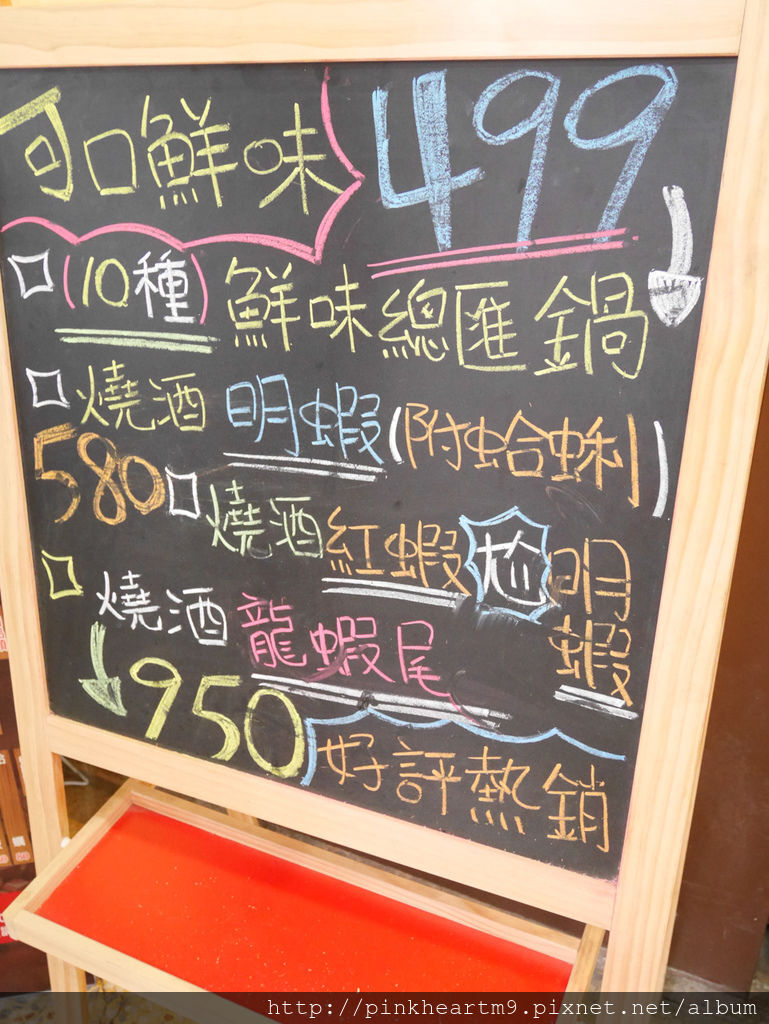 可口鮮味 499
(10種) 鮮味總匯鍋
燒酒 明蝦 (附蛤蜊)
580 燒酒紅蝦 尬 明蝦
燒酒 龍蝦尾
950 好評熱銷
http://pinkheartm9.pixnet.net/album